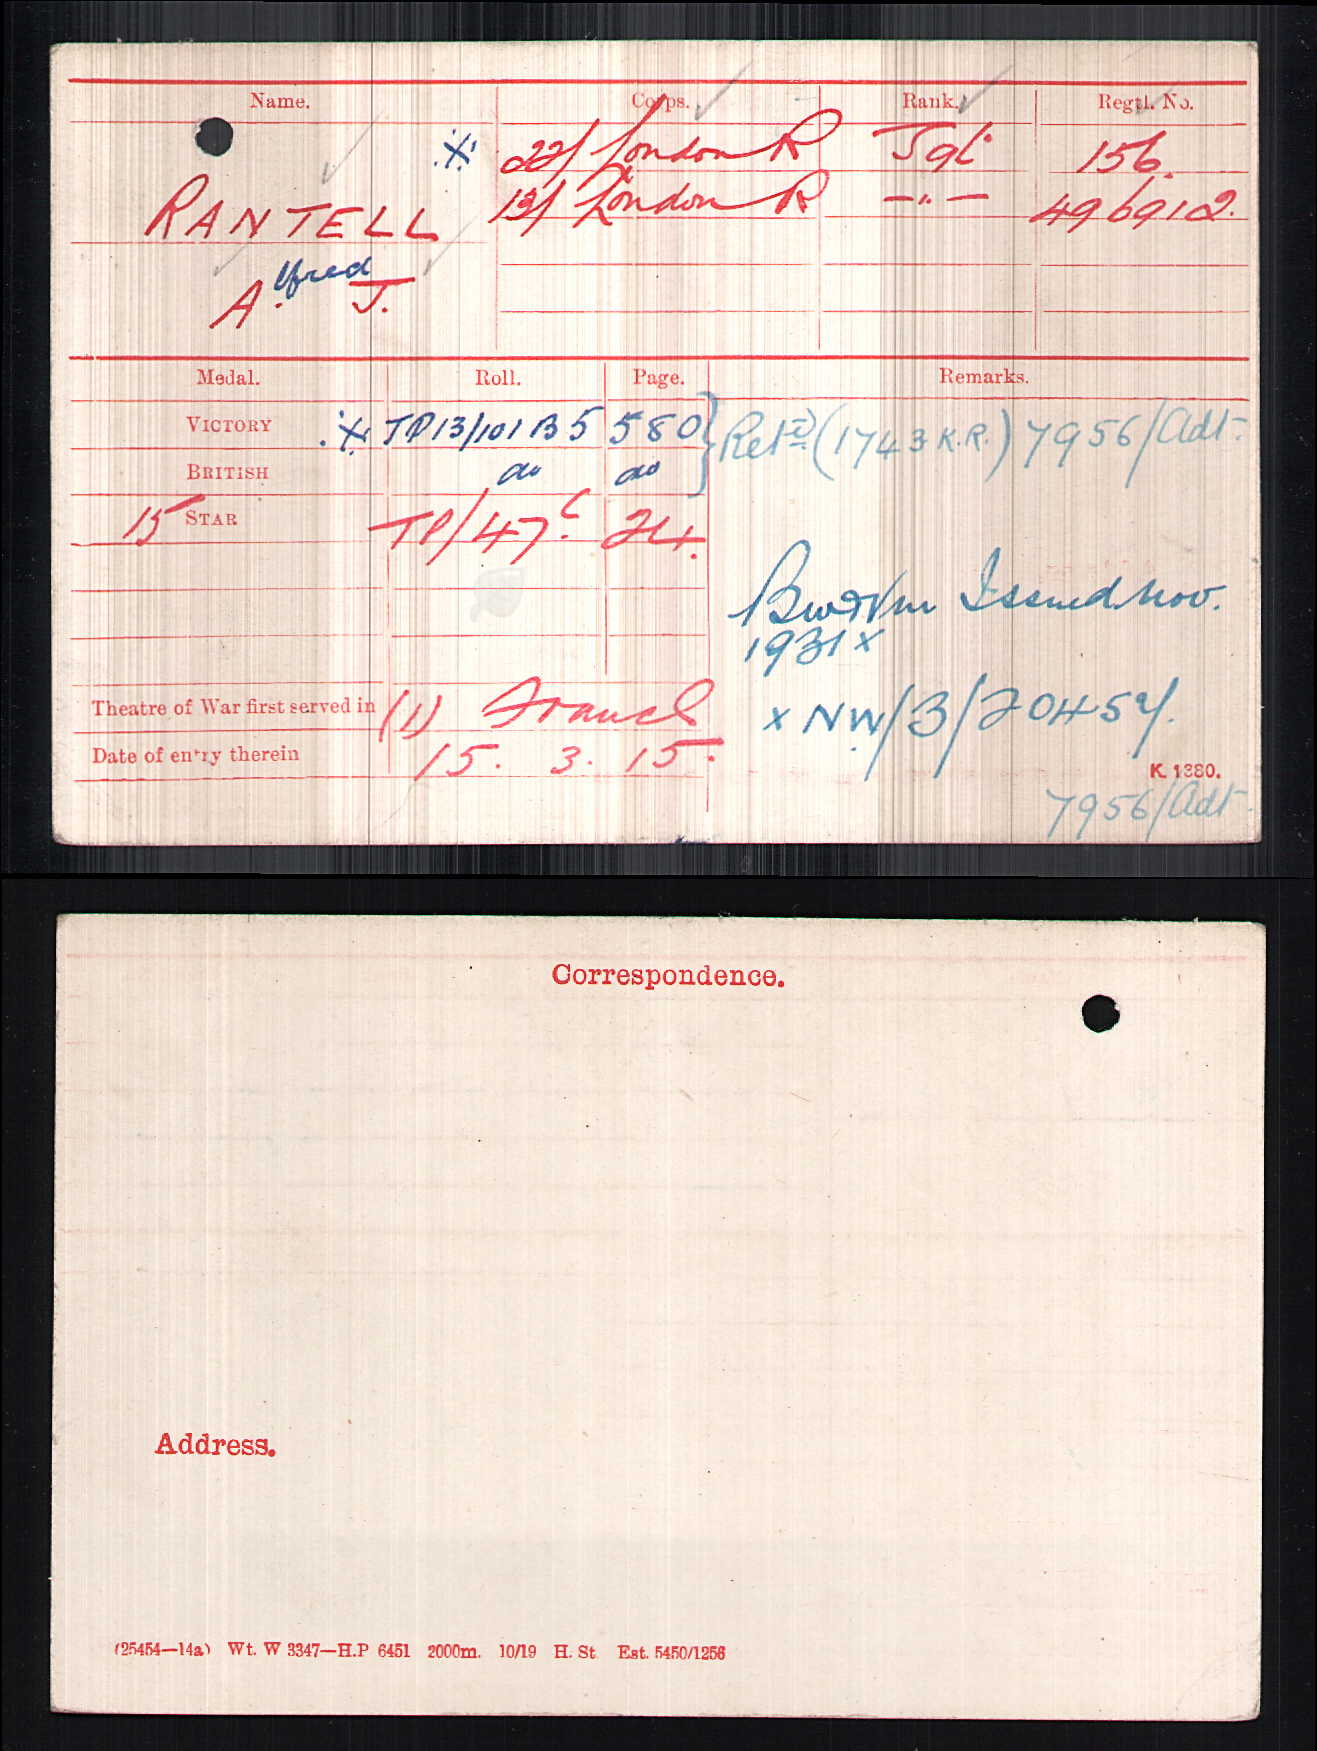 Name. Corps. Rank. Regtl. No.
22/ London R Sgt. 156.
RANTELL 13/ London R —"— 496912.
Alfred J.
Medal. Roll. Page. Remarks.
VICTORY TP13/101B5 580 Retd (1743 K.R.) 7956/Adt.
BRITISH do do
15 STAR TP/47C. 24.
BW & Vm Issued Nov.
1931 x
Theatre of War first served in (1) France x NW/3/20454.
Date of entry therein 15. 3. 15.
K. 1380.
7956/Adt.
Correspondence.
Address.
(25454—14a) Wt. W 3347—H.P 6451 2000m. 10/19 H. St. Est. 5450/1256